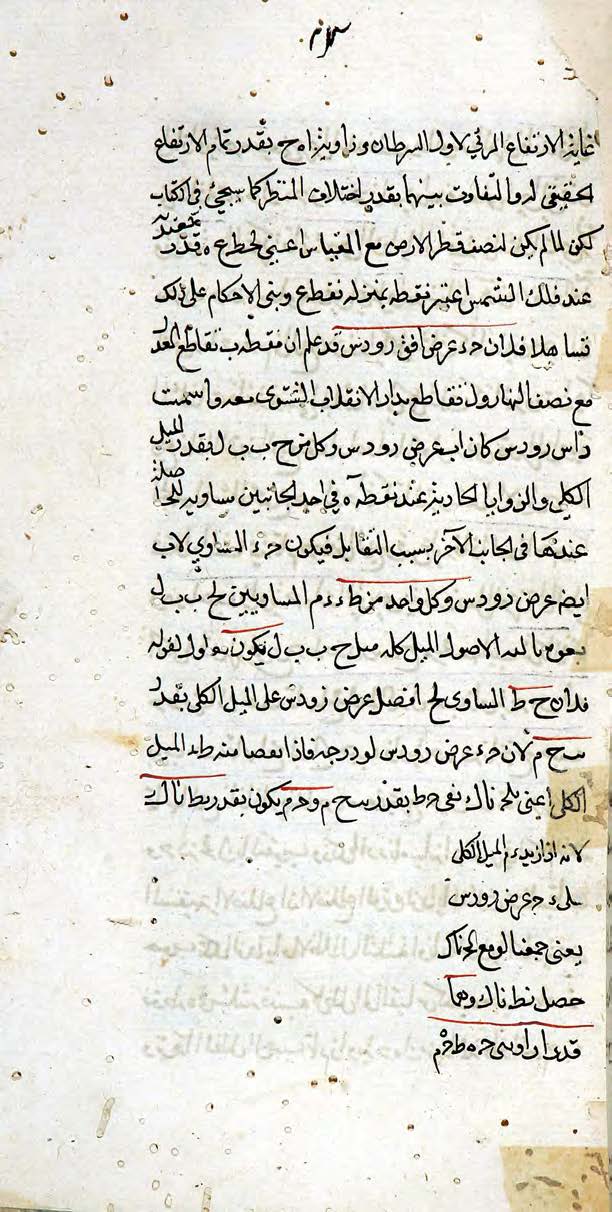 غاية الارتفاع المرئي لاول السرطان وزاوية اه ح بقدر تمام الارتفاع
الحقيقي له والتفاوت بينهما بقدر اختلاف المنظر كما سيجئ في الكتاب
لكن لما لم يكن لنصف قطر الارض مع المقياس اعني لخط ع ه قدر
عند فلك الشمس اعتبر نقطة ه بمنزلة نقطة ع وبنى الاحكام على ذلك
تساهلا فلان ح ء عرض افق رودس قد علم ان نقطة ب تقاطع المعدل
مع نصف النهار ول تقاطع مدار الانقلاب الشتوى معه وا سمت
راس رودس كان اب عرض رودس وكل من ح ب ب ل بقدر الميل
الكلي والزوايا الحادثة عند نقطة ه في احد الجانبين مساوية للحاصلة
عندها في الجانب الآخر بسبب التقابل فيكون ح ء المساوي لاب
ايضا عرض رودس وكل واحد من ط ء ء م المساويين لح ب ب ل
الاصول الميل كله ميل ح ب ب ل فيكون
فلان ح ط المساوى لح ا فضل عرض رودس على الميل الكلي بقدر
لان ح ء عرض رودس لو درجة فاذا نقصنا منه ط ء الميل
الكلي اعني كج نا ك بقى ح ط بقدر وح م يكون بقدر نط نا ك
لانه اذا زيد ء م الميل الكلي
على ء ح عرض رودس
يعني جمعنا لو مع كج نا ك
حصل نط نا ك وهما
قدرا زاويتى ح ه ط ح ه م